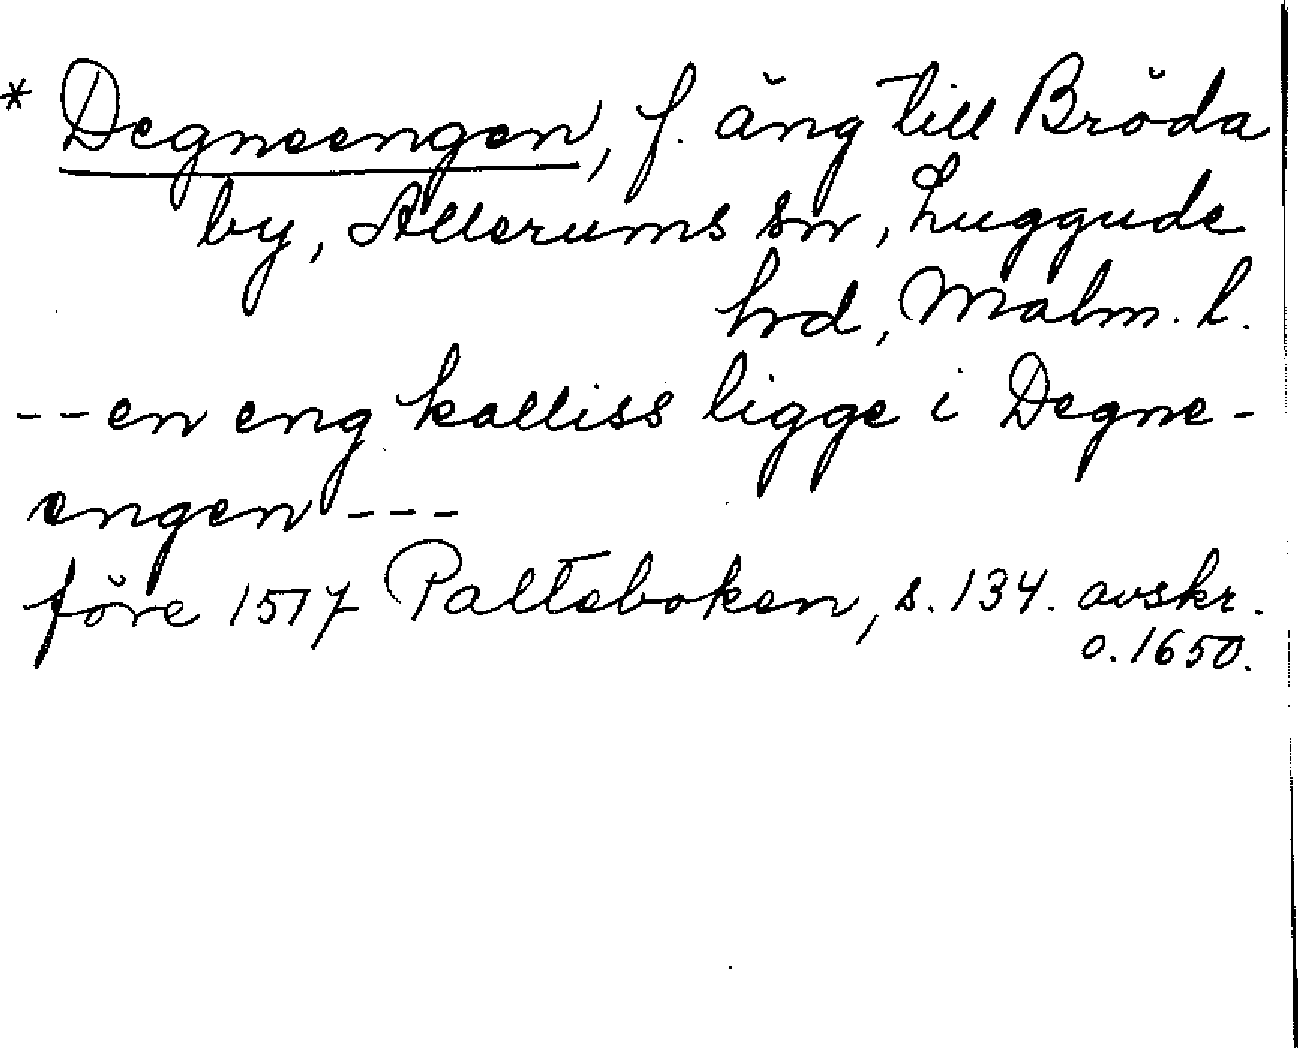 * Degneengen, f. äng till Bröda
by, Allerums sn, Luggude
hrd, Malm. l.
--en eng kalliss ligge i Degne-
engen ---
före 1517 Palteboken, s. 134. avskr.
o. 1650.